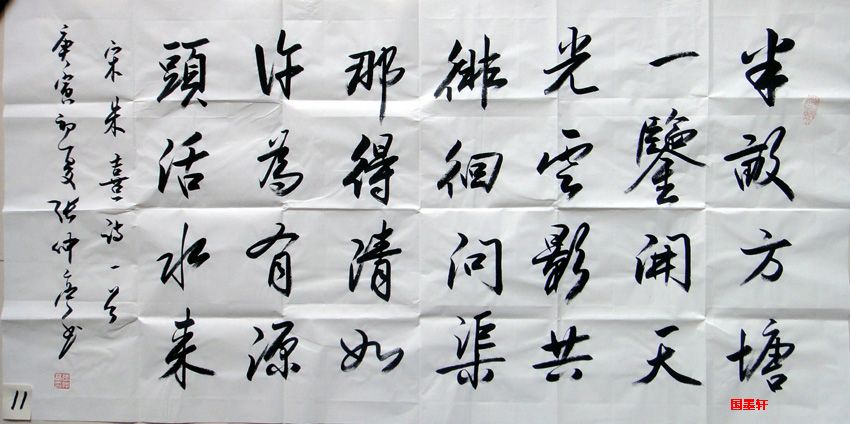 半畝方塘
一鑒開天
光雲影共
徘徊问渠
那得清如
许為有源
頭活水来
宋朱熹诗一首
庚寅初夏张仲亭书
11
国墨轩